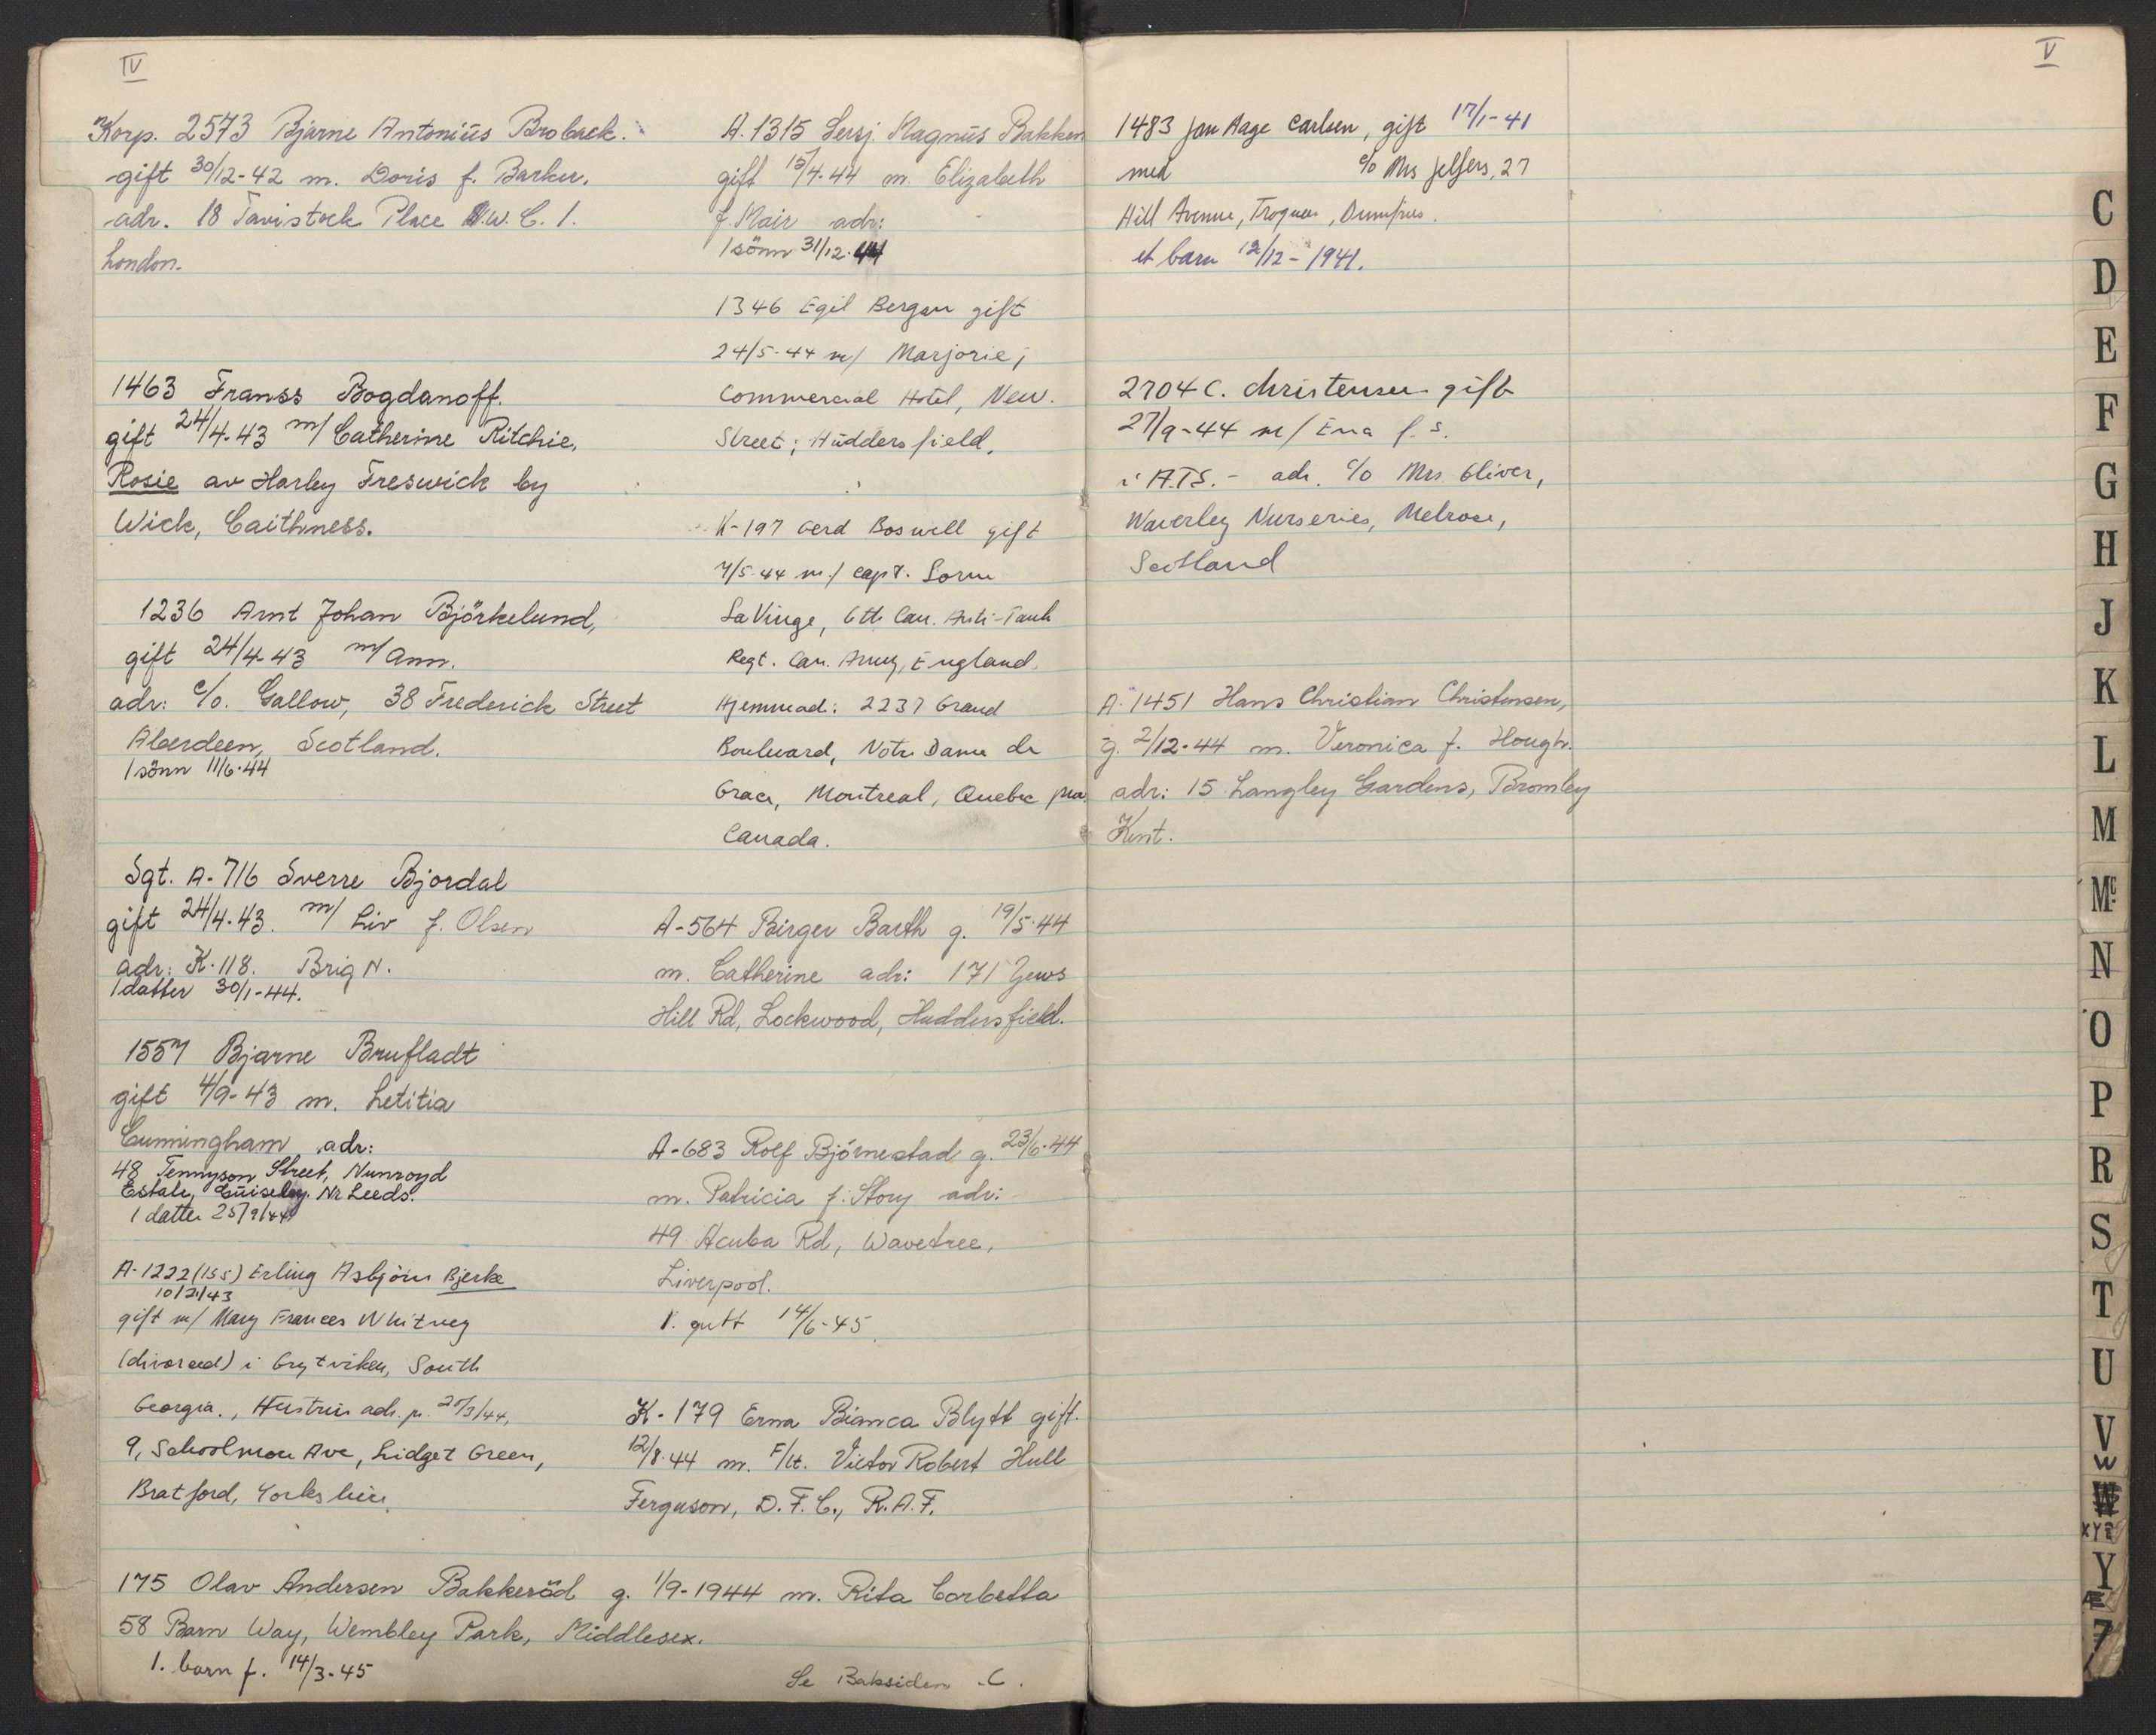 IV
Korp. 2573 Bjarne Antonius Brobaek.
gift 30/12-42 m. Doris f. Barker.
adr. 18 Tavistock Place W.C. 1.
London.
1463 Franss Bogdanoff.
gift 24/4-43 m/ Catherine Ritchie,
Rosie av Harley Freswick by
Wick, Caithness.
1236 Arnt Johan Björkelund,
gift 24/4-43 m/ Ann.
adr: c/o. Gallow, 38 Frederick Street
Aberdeen, Scotland.
1 sönn 11/6-44
Sgt. A-716 Sverre Bjordal
gift 24/4-43. m/ Liv f. Olsen
adr: K-118. Brig N.
1 datter 30/1-44.
1557 Bjarne Brufladt
gift 4/9-43 m. Letitia
Cunningham adr:
48 Tennyson Street, Nunroyd
Estate, Guiseley. Nr Leeds.
1 datter 25/9/44
A-1222 (155) Erling Asbjörn Bjerke
10/21/43
gift m/ Mary Frances Whitney
(divorced) i Grytviken, South
Georgia., Hustrus adr. pr. 25/3/44,
9, Schoolmore Ave, Lidget Green,
Bratford, Yorkshire.
175 Olav Andersen Bakkeröd g. 1/9-1944 m. Rita Corbetta
58 Barn Way, Wembley Park, Middlesex.
1. barn f. 14/3-45
A. 1315 Sersj. Magnus Bakken
gift 15/4-44 m. Elizabeth
f. Mair adr:
1 sönn 31/12-44
1346 Egil Bergan gift
24/5-44 m/ Marjorie,
Commercial Hotel, New.
Street; Huddersfield.
K-197 Gerd Boswell gift
7/5-44 m/ capt. Lorne
LaVinge, 6th Can. Anti-Tank
Regt. Can. Army, England.
Hjemmead: 2237 Grand
Boulevard, Notre Dame de
Grace, Montreal, Quebec
Canada.
A-564 Birger Barth g. 19/5-44
m. Catherine adr: 171 Yews
Hill Rd, Lockwood, Huddersfield.
A-683 Rolf Björnestad g. 23/6-44
m. Patricia f. Story adr:
49 Acuba Rd, Wavetree,
Liverpool.
1. gutt 14/6-45
K-179 Erna Bianca Blytt gift.
12/8-44 m. F/Lt. Victor Robert Hull
Ferguson, D.F.C., R.A.F.
Se Baksiden .C.
V
1483 Jan Aage Carlsen, gift 17/1-41
med c/o Mrs Jeffers, 27
Hill Avenue, Troqueer, Dumfries.
et barn 12/12-1941.
2704 C. Christensen gift
27/9-44 m/ Ena f. S.
i A.T.S. - adr. c/o Mrs. Oliver,
Waverley Nurseries, Melrose,
Scotland
A-1451 Hans Christian Christensen,
g. 2/12-44 m. Veronica f. Hough.
adr: 15 Langley Gardens, Bromley
Kent.
C
D
E
F
G
H
J
K
L
M
Mc
N
O
P
R
S
T
U
V
W
W
XYZ
Y
Æ